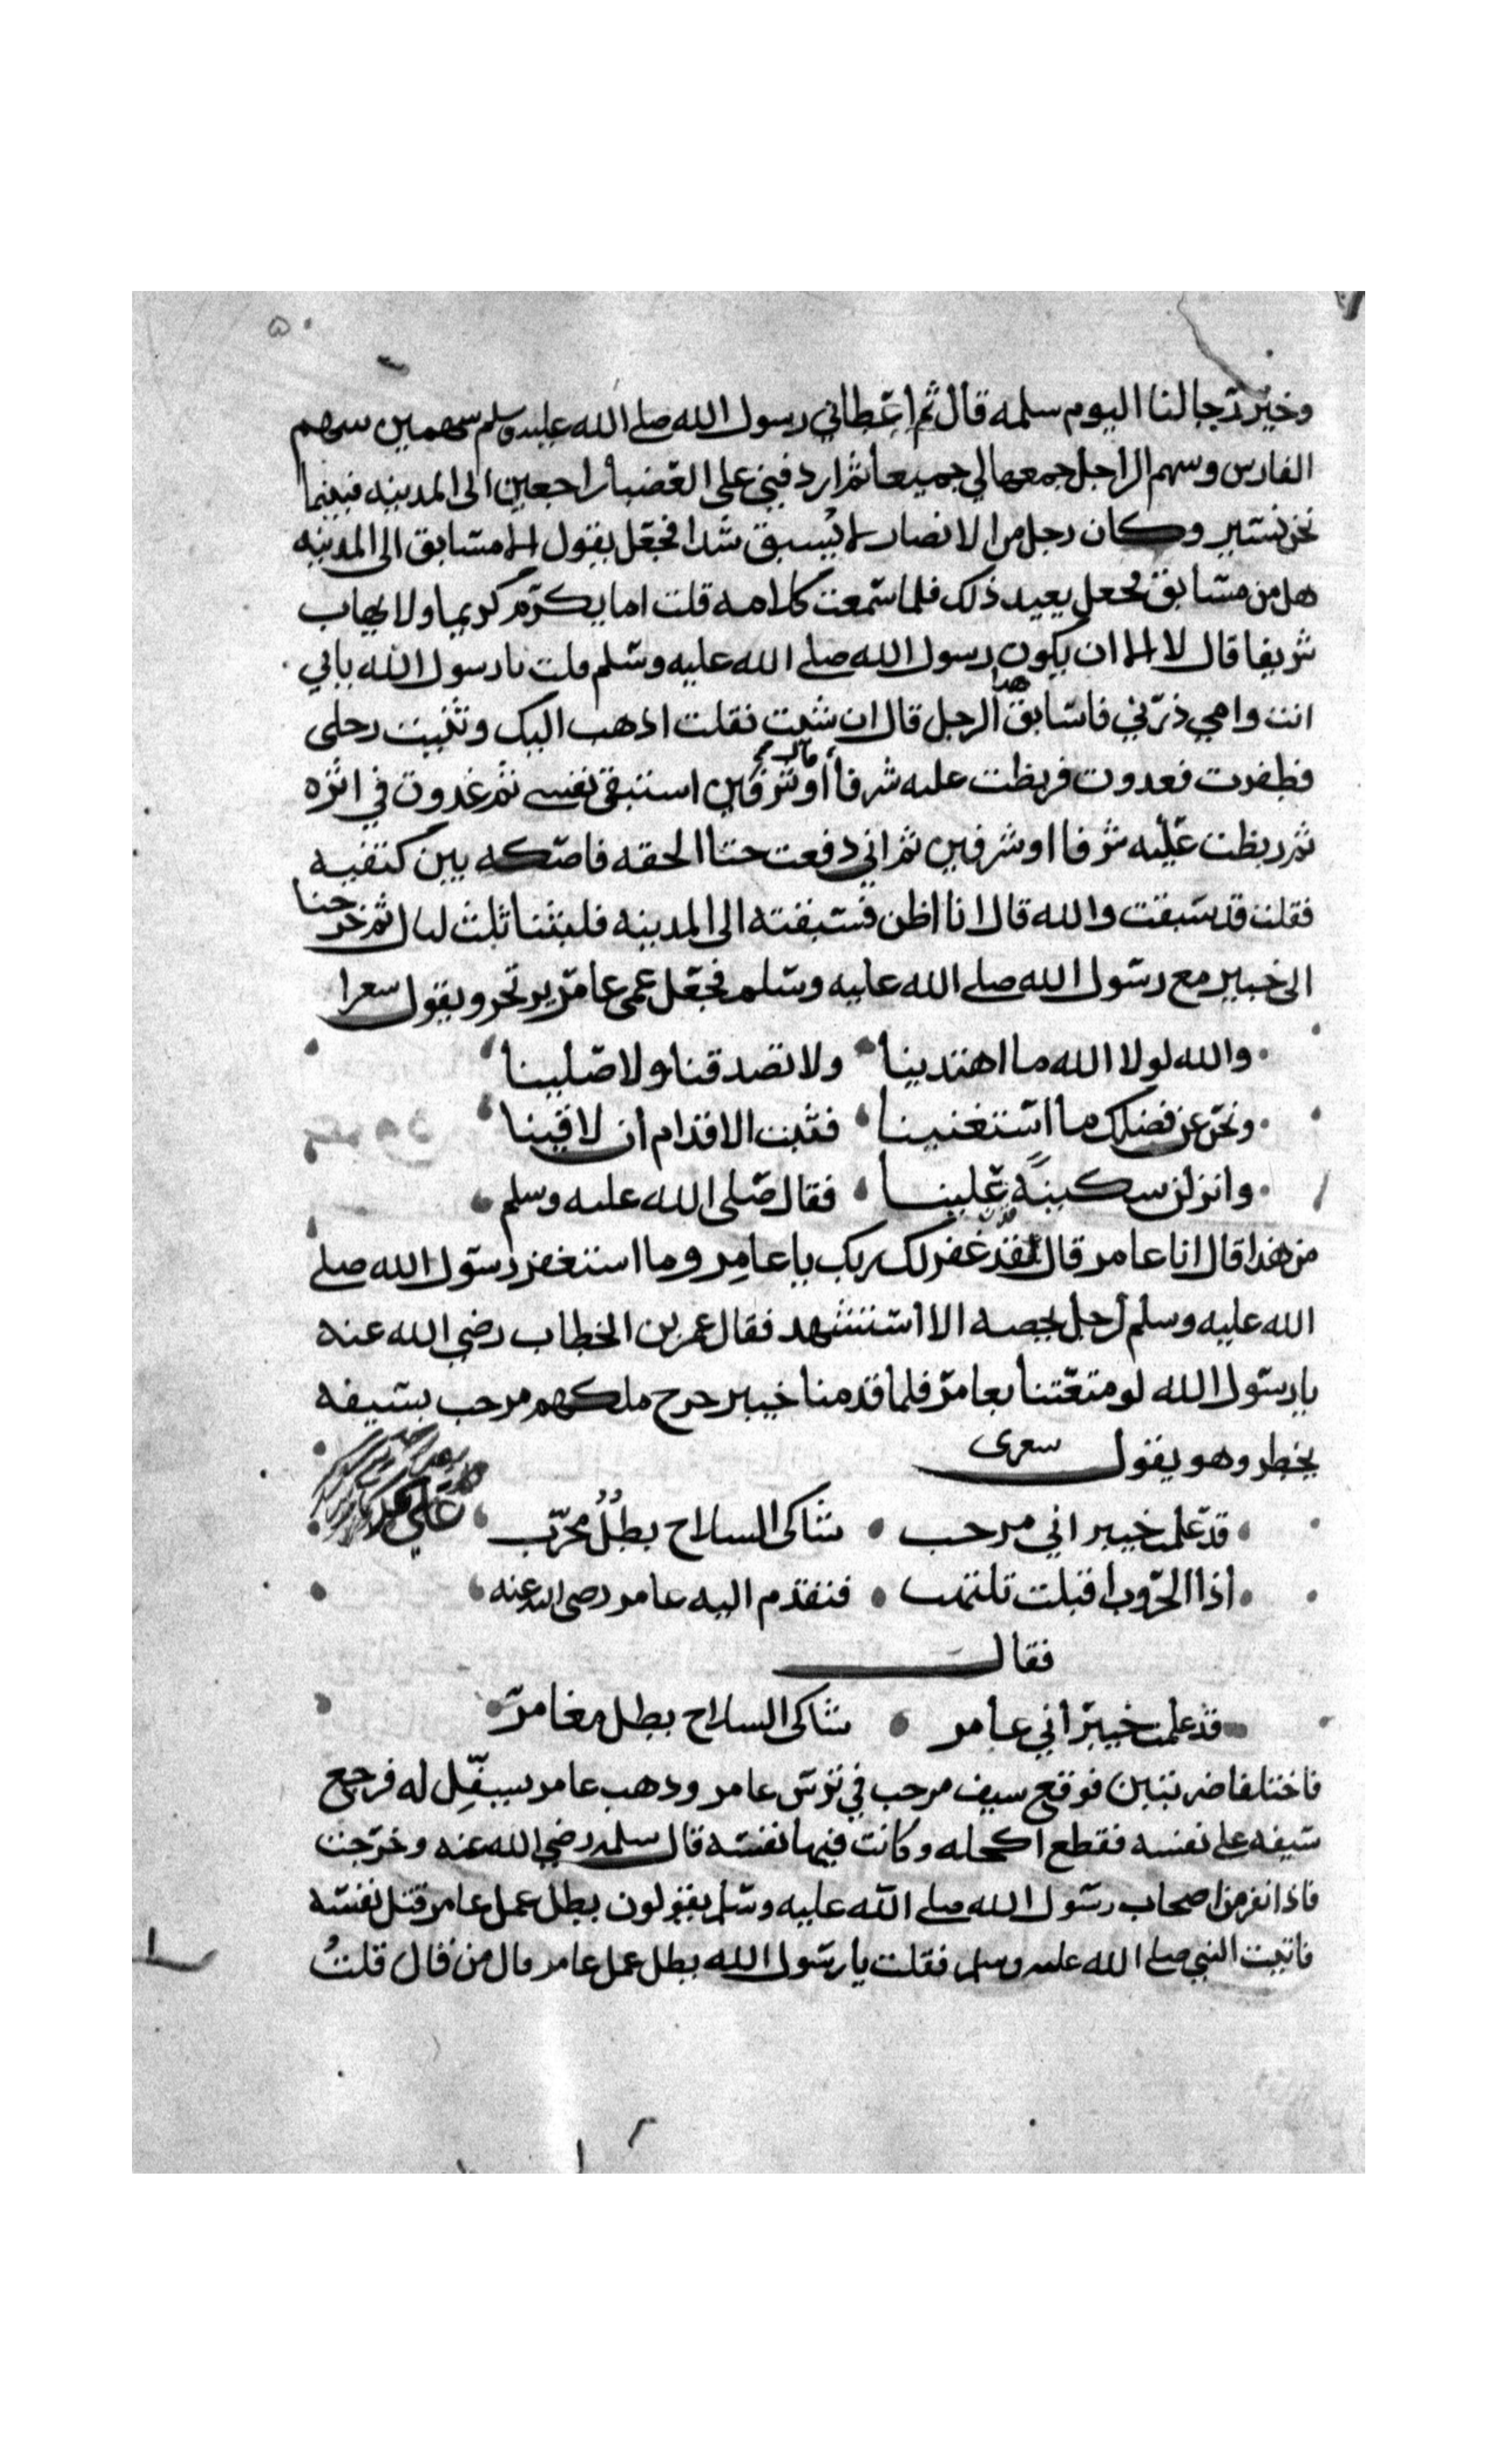 ٥٠
وخير رجالنا اليوم سلمه قال ثم اعطاني رسول الله صلى الله عليه وسلم سهمين سهم
الفارس وسهم الراجل جمعهما لي جميعا ثم اردفني على العضبا راجعين الى المدينه فبينما
نحن نسير وكان رجل من الانصار لا يُسبق شدا فجعل يقول الا مسابق الى المدينه
هل من مسابق فجعل يعيد ذلك فلما سمعت كلامه قلت اما يكرم كريما ولا يهاب
شريفا قال لا الا ان يكون رسول الله صلى الله عليه وسلم قلت يا رسول الله بابي
انت وامي ذرني فاسابق هذا الرجل قال ان شيت فقلت اذهب اليك وثنيت رجلى
فطفرت فعدوت فربطت عليه شرفا او شرفين استبقى نفسى ثم غدوت في اثره
ثم ربطت عليه شرفا او شرفين ثم اني دفعت حتا الحقه فاصكه بين كتفيه
فقلت قد سبقت والله قال انا اظن فسبقته الى المدينه فلبثنا ثلث ليال ثم خرجنا
الى خيبر مع رسول الله صلى الله عليه وسلم فجعل عمى عامر يرتجز ويقول سعرا
والله لولا الله ما اهتدينا ولا تصدقنا ولا صلينا
ونحن عن فضلك ما استغنينا فثبت الاقدام ان لاقينا
وانزلن سكينة علينا فقال صلى الله عليه وسلم
من هذا قال انا عامر قال غفر لك ربك يا عامر وما استغفر رسول الله صلى
الله عليه وسلم لرجل يخصه الا استشهد فقال عمر بن الخطاب رضي الله عنه
يا رسول الله لو متعتنا بعامر فلما قدمنا خيبر خرج ملكهم مرحب بسيفه
يخطر وهو يقول سعرى
قد علمت خيبر اني مرحب شاكى السلاح بطلٌ مجرب
اذا الحروب اقبلت تلتهب فتقدم اليه عامر رضى الله عنه
فقال
قد علمت خيبر اني عامر شاكى السلاح بطل مغامر
فاختلفا ضربتين فوقع سيف مرحب في ترس عامر وذهب عامر يسفّل له فرجع
سيفه على نفسه فقطع اكحله وكانت فيها نفسه قال سلمه رضي الله عنه وخرجت
فاذا نفر من اصحاب رسول الله صلى الله عليه وسلم يقولون بطل عمل عامر قتل نفسه
فاتيت النبي صلى الله عليه وسلم فقلت يا رسول الله بطل عمل عامر قال من قال قلتُ